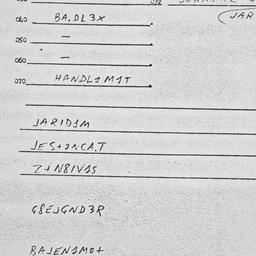 040 BA.DL3X
(JAR
050 –
060 –
070 HANDL1M1T
JARID1M
JES+2NCA.T
Z+N8IV1S
G8EJGND3R
BAJEN1M0+